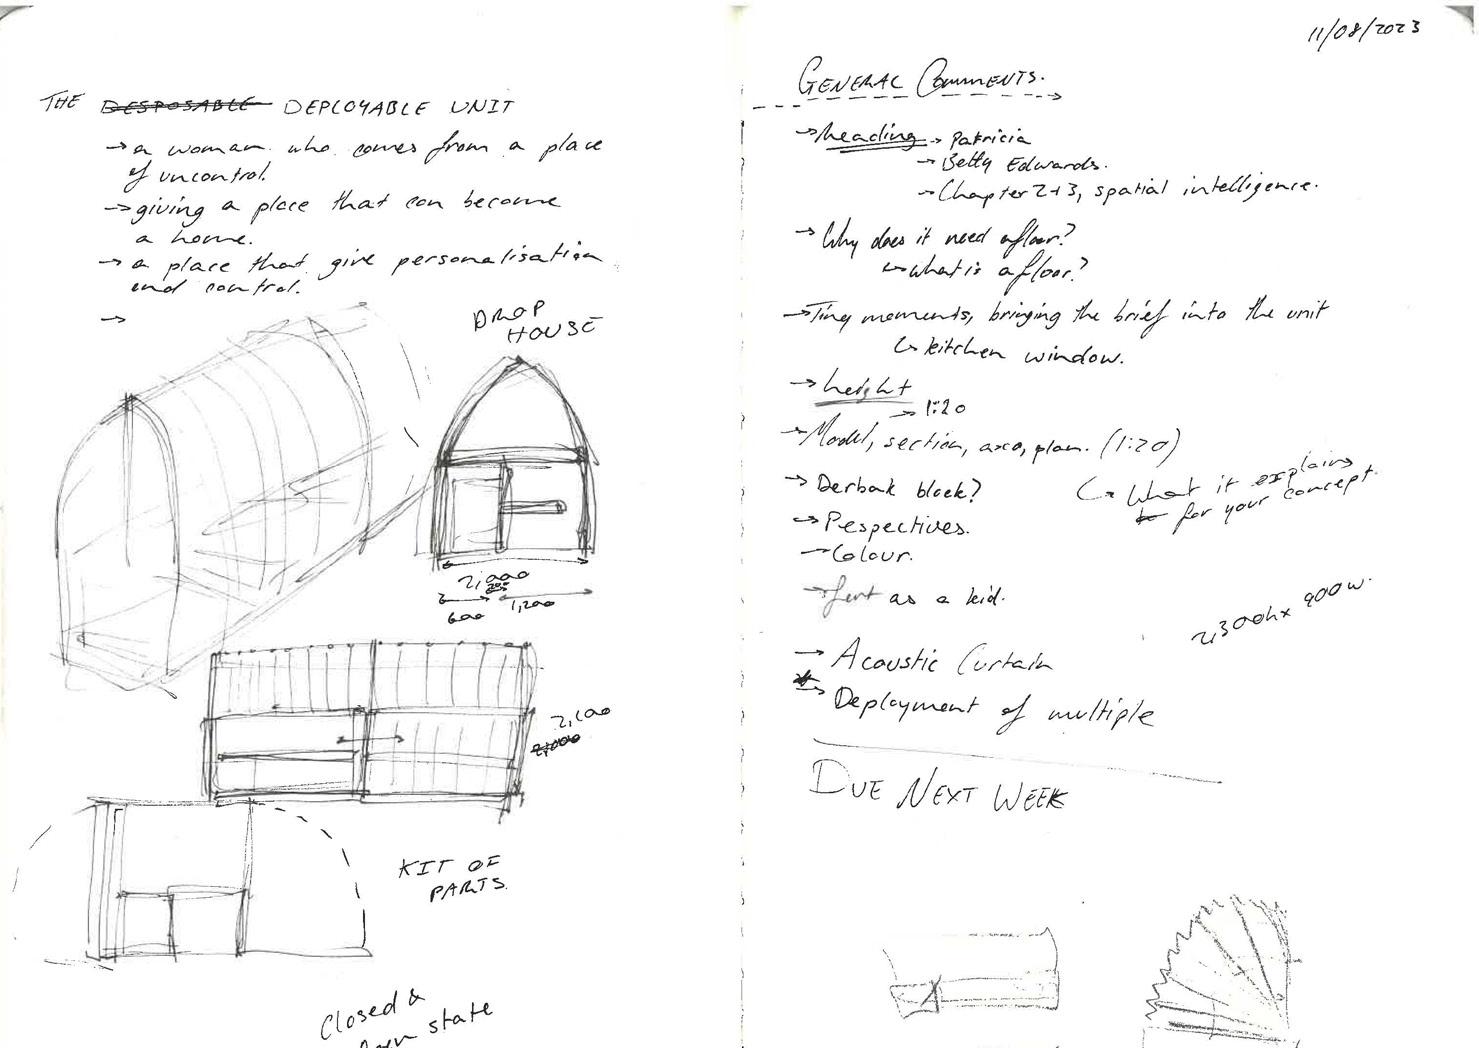 THE DESPOSABLE DEPLOYABLE UNIT
→ a woman who comes from a place
of uncontrol.
→ giving a place that can become
a home.
→ a place that give personalisation
and control.
→
DROP
HOUSE
2,000
600
1,200
2,100
2,000
KIT OF
PARTS.
Closed &
open state
11/08/2023
GENERAL COMMENTS.
→ heading → Patricia
→ Betty Edwards.
→ Chapter 2+3, spatial intelligence.
→ Why does it need a floor?
↳ what is a floor?
→ Tiny moments, bringing the brief into the unit
↳ kitchen window.
→ height
→ 1:20
→ Model, section, axo, plan. (1:20)
↳ What it explains
for your concept.
→ Derbak block?
→ Pespectives.
→ Colour.
→ as a kid.
2,300h x 900w.
→ Acoustic Curtain
→ Deployment of multiple
DUE NEXT WEEK